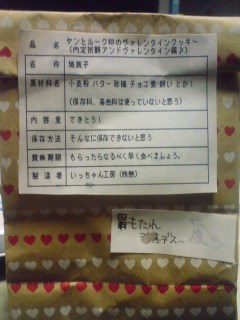 品　名 ヤンとルーク印のヴァレンタインクッキー
(内定祈願アンドヴァレンタイン編♪)
名　称 焼菓子
原材料名 小麦粉 バター 砂糖 チョコ 愛 酔い とか！
(保存料、着色料は使っていないと思う)
内容量 てきとう！
保存方法 そんなに保存できないと思う
賞味期限 もらったらなるべく早く食べましょう。
製造者 いっちゃん工房 (株無)
胃もたれ
デスー